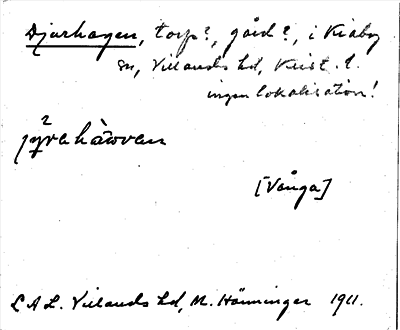 Djurhagen, torp?, gård?, i Kiaby
sn, Villands hd, Krist. l.
ingen lokalisation!
[Vånga]
L A L. Villands hd, M. Hönninger 1911.